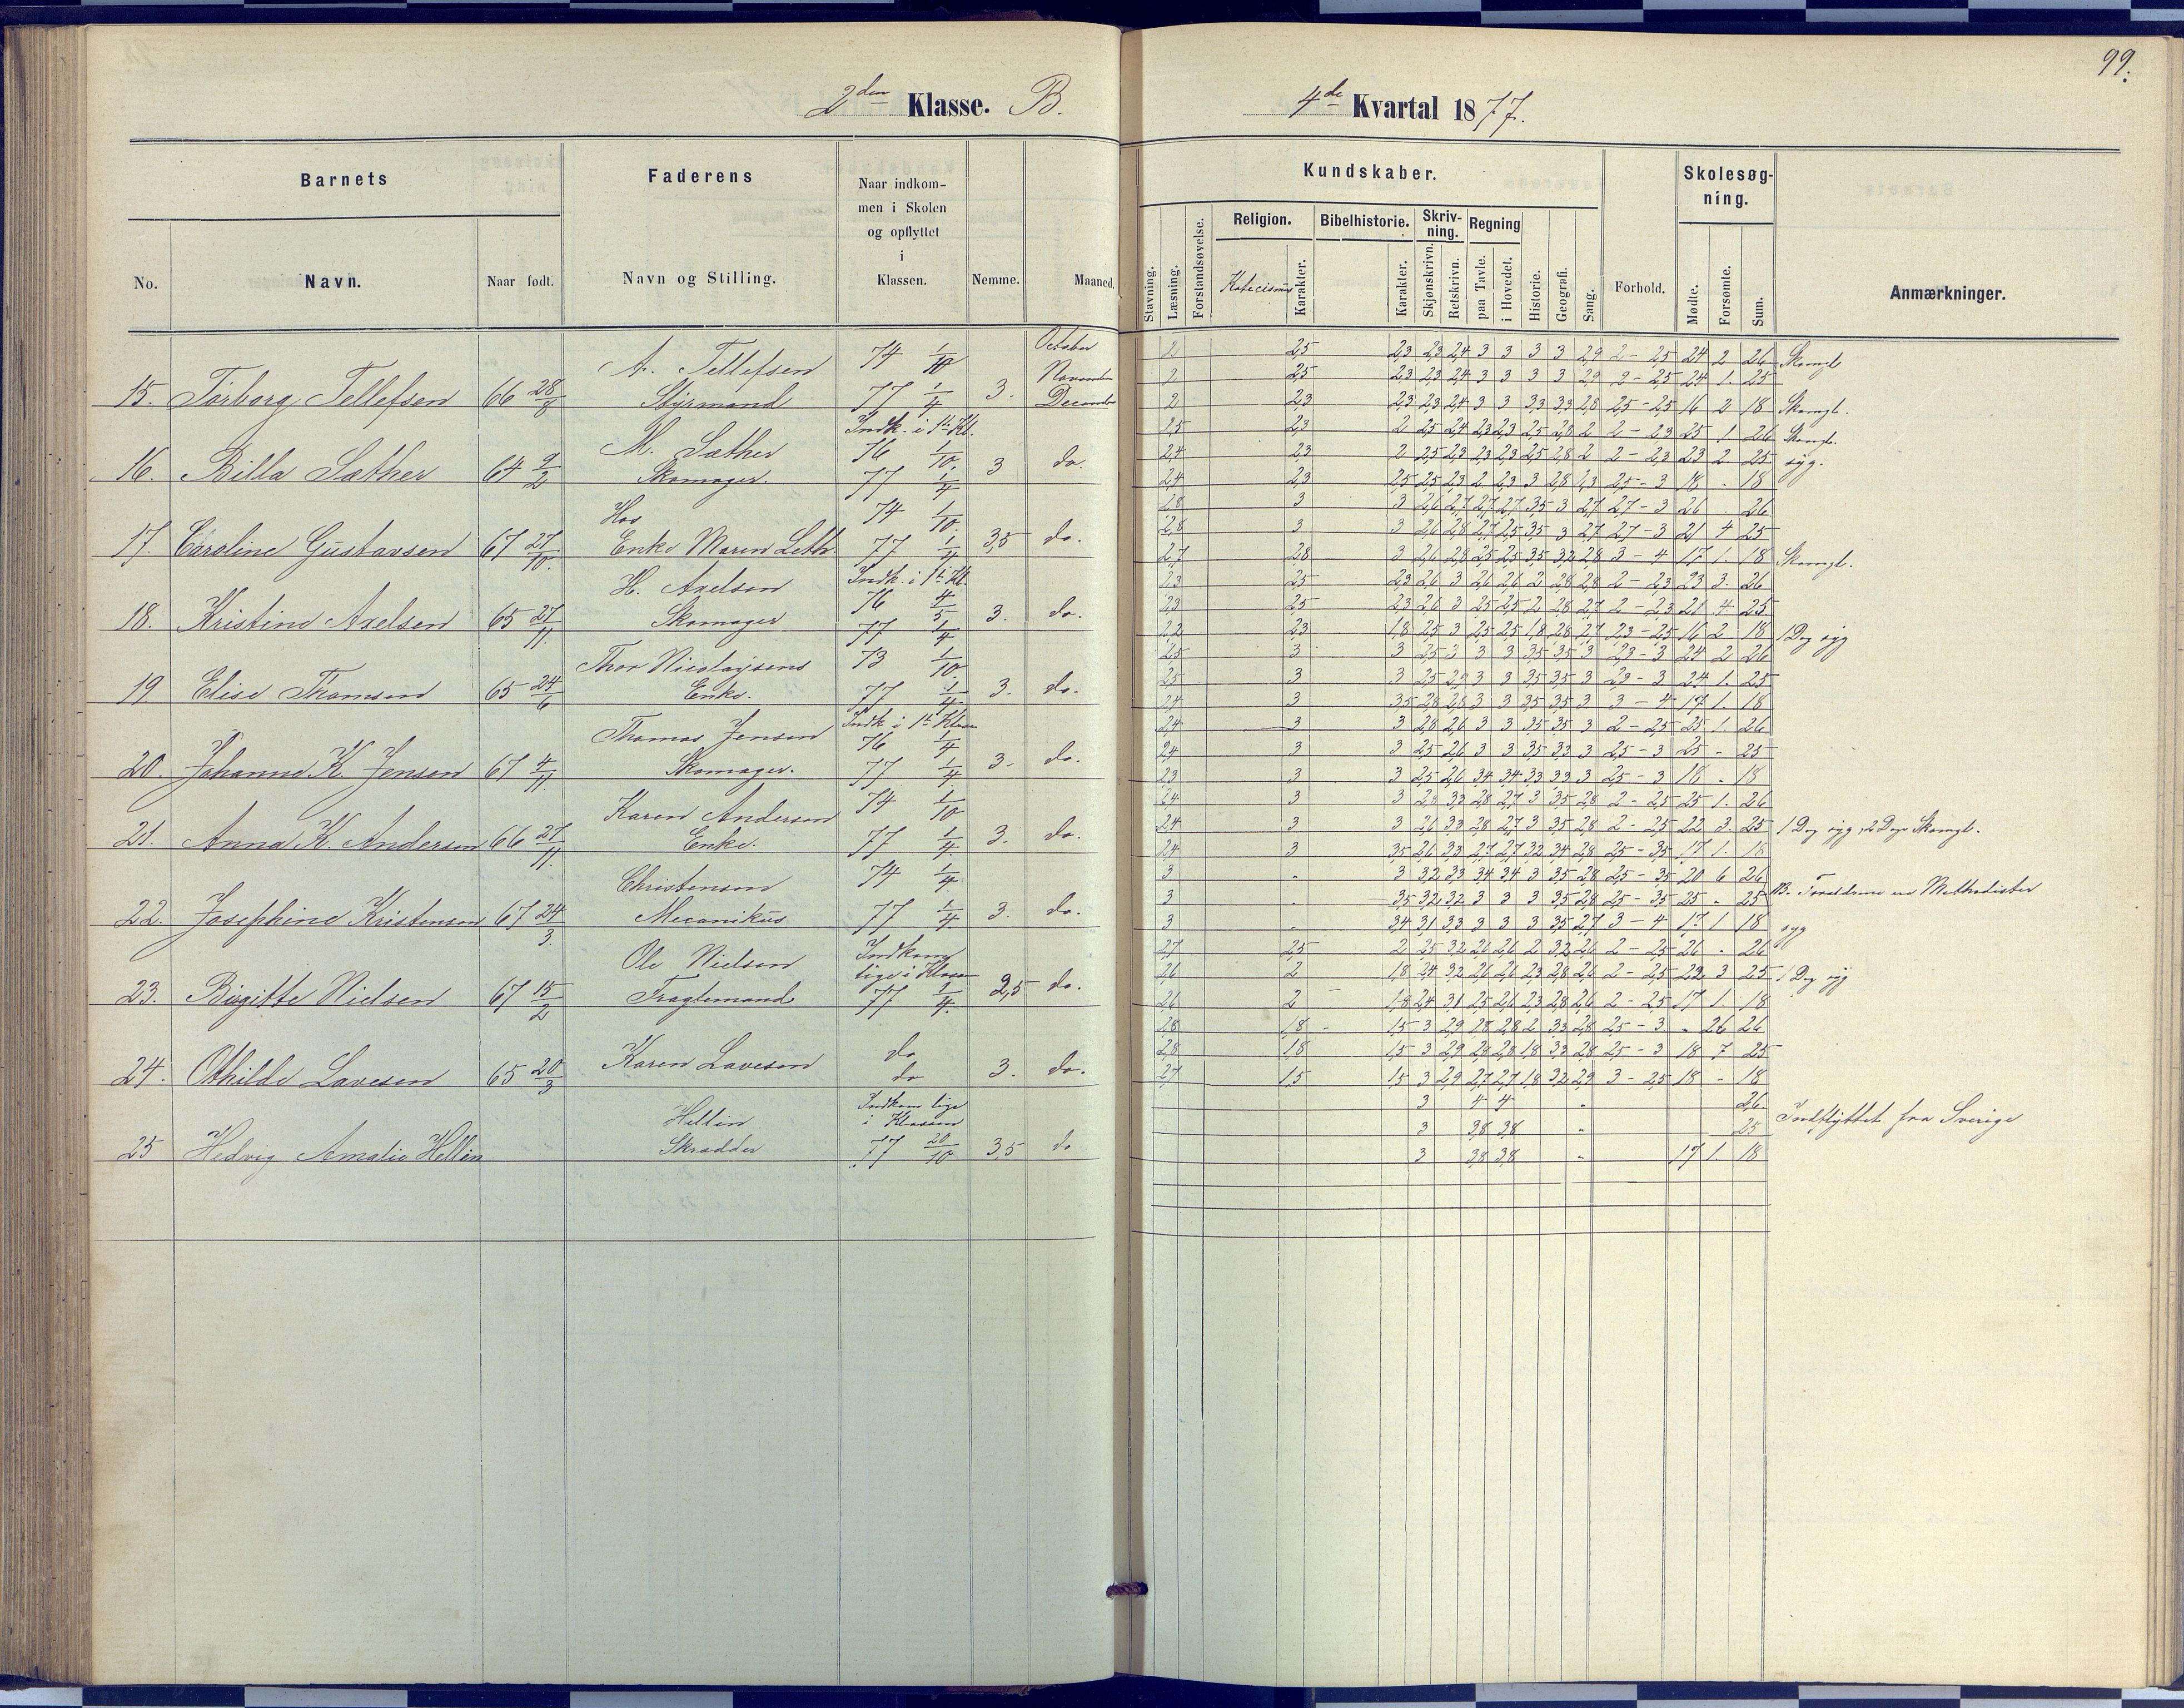 99.
2den Klasse. B.
4de Kvartal 1877.
Barnets
Faderens
Naar indkom-
men i Skolen
og opflyttet
i
Klassen.
No.
Navn.
Naar født.
Navn og Stilling.
Nemme.
Maaned.
Kundskaber.
Skolesøg-
ning.
Religion.
Bibelhistorie.
Skriv-
ning.
Regning
Stavning.
Læsning.
Forstandsøvelse.
Katecismus
Karakter.
Karakter.
Skjønskrivn.
Retskrivn.
paa Tavle.
i Hovedet.
Historie.
Geografi.
Sang.
Forhold.
Mødte.
Forsømte.
Sum.
Anmærkninger.
15. Torborg Tellefsen 66 28/8 A. Tellefsen Styrmand 74 1/10 77 1/4 3. October November December
2 2,5 2,3 2,3 2,4 3 3 3 3 2,9 2 - 2,5 24 2 26 Skomgl
2 2,5 2,3 2,3 2,4 3 3 3 3 2,9 2 - 2,5 24 1. 25
2 2,3 2,3 2,3 2,4 3 3 3,3 3,3 2,8 2,5 - 2,5 16 2 18 Skomgl.
16. Billa Sæther 64 9/2 M. Sæther Skomager. Indk. i 1ste Kl. 76 1/10. 77 1/4 3 do.
2,5 2,3 2 2,5 2,4 2,3 2,3 2,5 2,8 2 2 - 2,3 25 1 26 Skomgl.
2,4 2,3 2 2,5 2,3 2,3 2,3 2,5 2,8 2 2 - 2,3 23 2 25 syg.
2,4 2,3 2,5 2,5 2,3 2 2,3 3 2,8 2,3 2,5 - 3 18 - 18
17. Caroline Gustavsen 67 27/10. Hos Enke Maren Leth 74 1/10. 77 1/4 3,5 do.
2,8 3 3 2,6 2,7 2,7 2,7 3,5 3 2,7 2,7 - 3 26 26
2,8 3 3 2,6 2,8 2,7 2,5 3,5 3 2,7 2,7 - 3 21 4 25
2,7 2,8 3 2,6 2,8 2,5 2,5 3,5 3,2 2,8 3 - 4 17 1. 18 Skomgl.
18. Kristine Axelsen 65 27/11. H. Axelsen Skomager Indk. i 1ste Kl. 76 4/5 77 1/4 3. do.
2,3 2,5 2,3 2,6 3 2,6 2,6 2 2,8 2,8 2 - 2,3 23 3. 26
2,3 2,5 2,3 2,6 3 2,5 2,5 2 2,8 2,7 2 - 2,3 21 4 25
2,2 2,3 1,8 2,5 3 2,5 2,5 1,8 2,8 2,7 2,3 - 2,5 16 2 18 1 Dag syg
19. Elise Thomsen 65 24/6 Thor Nicolaysens Enke. 73 1/10. 77 1/4 3. do.
2,5 3 3 2,5 3 3 3 3,5 3,5 3 2,3 - 3 24 2 26
2,5 3 3 2,5 2,9 3 3 3,5 3,5 3 2,3 - 3 24 1. 25
2,4 3 3,5 2,8 2,8 3 3 3,5 3,5 3 3 - 4 17 1. 18
20. Johanne K. Jensen 67 4/11. Thomas Jensen Skomager. Indk i 1ste Klasse 76 1/4 77 1/4. 3. do.
2,4 3 3 2,8 2,6 3 3 3,5 3,5 3 2 - 2,5 25 1. 26
2,4 3 3 2,5 2,6 3 3 3,5 3,3 3 2,5 - 3 25 - 25
2,3 3 3 2,5 2,6 3,4 3,4 3,3 3,3 3 2,5 - 3 18 - 18
21. Anna K. Andersen 66 27/11. Karen Andersen Enke. 74 1/10 77 1/4. 3. do.
2,4 3 3 2,8 3,3 2,8 2,7 3 3,5 2,8 2 - 2,5 25 1. 26
2,4 3 3 2,6 3,3 2,8 2,7 3 3,5 2,8 2 - 2,5 22 3. 25 1 Dag syg, 2 Dage Skomgl.
2,4 3 3,5 2,6 3,3 2,7 2,7 3,2 3,4 2,8 2,5 - 3,5 17 1. 18
22. Josephine Kristensen 67 24/3. Christensen Mecanikus 74 1/4. 77 1/4. 3. do.
3 - 3 3,2 3,3 3,4 3,4 3 3,5 2,8 2,5 - 3,5 20 6 26 B. Forældrene er Methodister
3 - 3,5 3,2 3,2 3 3 3 3,5 2,8 2,5 - 3,5 25 - 25
3 - 3,4 3,1 3,3 3 3 3 3,5 2,7 3 - 4 17 1 18 syg
23. Birgitte Nielsen 67 15/2 Ole Nielsen Fragtemand Indkom lige i Klassen 77 1/4. 2,5 do.
2,7 2,5 2 2,5 3,2 2,6 2,6 2 3,2 2,6 2 - 2,5 26 - 26
2,6 2 1,8 2,4 3,2 2,6 2,6 2,3 2,8 2,6 2 - 2,5 22 3 25 1 Dag syg
2,6 2 1,8 2,4 3,1 2,5 2,6 2,3 2,8 2,6 2 - 2,5 17 1. 18
24. Othilde Lavesen 65 20/3 Karen Lavesen do do 3. do.
2,8 1,8 - 1,5 3 2,9 2,8 2,8 2 3,3 2,8 2,5 - 3 - 26 26
2,8 1,8 1,5 3 2,9 2,8 2,8 1,8 3,3 2,8 2,5 - 3 18 7 25
2,7 1,5 1,5 3 2,9 2,7 2,7 1,8 3,2 2,9 3 - 2,5 18 - 18
25 Hedvig Amalie Hellin Hellin Skrædder Indkom lige i Klassen 77 20/10 3,5 do
3 4 4 - 26 Indflyttet fra Sverige
3 3,8 3,8 - 25
3 3,8 3,8 - 17 1. 18